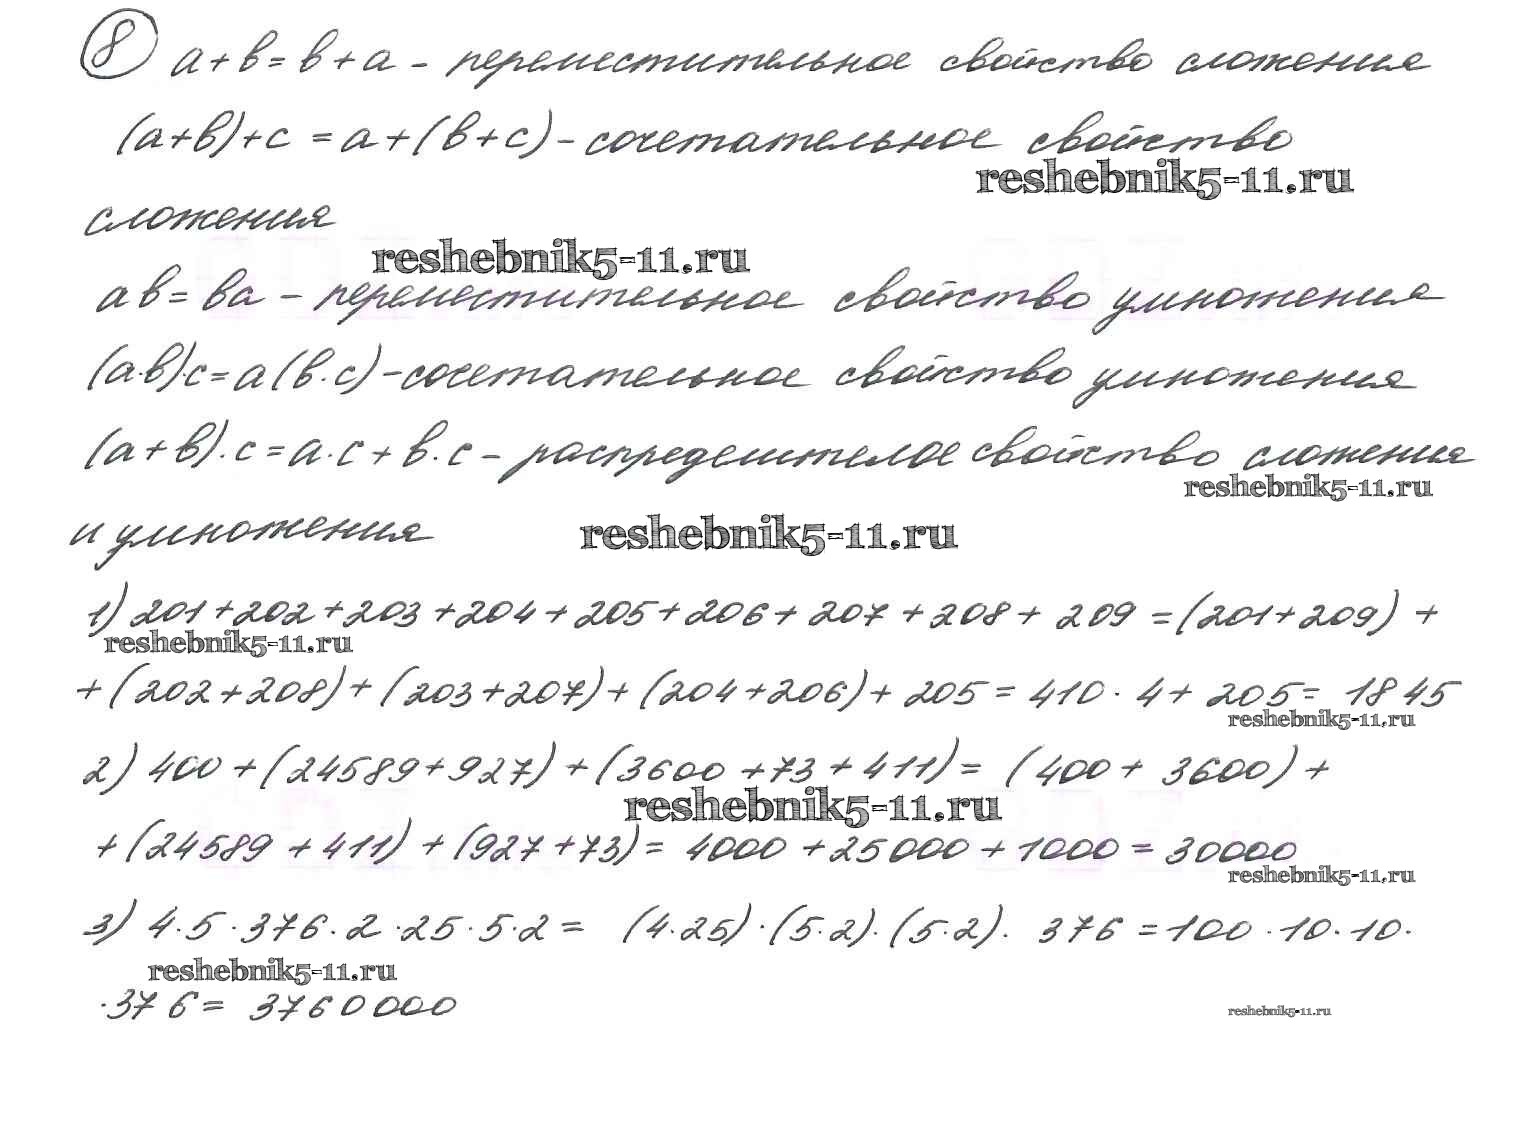 8 a+b=b+a - переместительное свойство сложения
(a+b)+c = a+(b+c) - сочетательное свойство
reshebnik5-11.ru
сложения
reshebnik5-11.ru
ab = ba - переместительное свойство умножения
(a·b)·c = a(b·c) - сочетательное свойство умножения
(a+b)·c = a·c + b·c - распределителое свойство сложения
reshebnik5-11.ru
и умножения
reshebnik5-11.ru
1) 201+202+203+204+205+206+207+208+209 = (201+209) +
reshebnik5-11.ru
+ (202+208) + (203+207) + (204+206) + 205 = 410·4 + 205 = 1845
reshebnik5-11.ru
2) 400 + (24589+927) + (3600 + 73 + 411) = (400 + 3600) +
reshebnik5-11.ru
+ (24589 + 411) + (927 + 73) = 4000 + 25000 + 1000 = 30000
reshebnik5-11.ru
3) 4·5·376·2·25·5·2 = (4·25)·(5·2)·(5·2)· 376 = 100·10·10·
reshebnik5-11.ru
·376 = 3760000
reshebnik5-11.ru